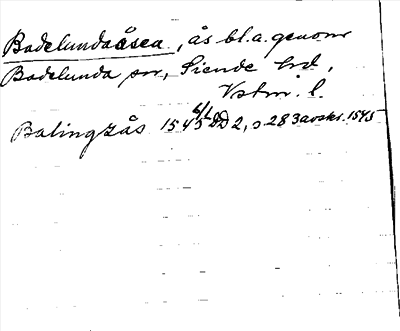 Badelundaåsen, ås bl.a. genom
Badelunda sn, Siende hd,
Vstm. l.
Balingsås 1545 4/2 DD 2, s 283 avskr. 1545